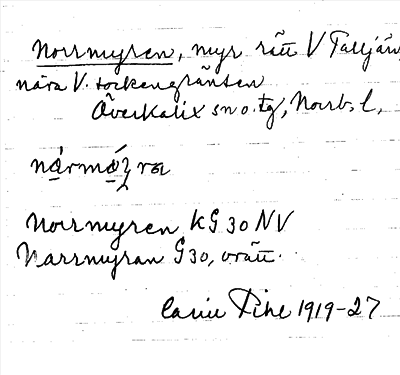 Norrmyren, myr rätt V Talljärv,
nära V. sockengränsen
Överkalix sn o. tg, Norrb. l.
Norrmyren KG 30 NV
Narrmyran G 30, orätt.
Carin Pihl 1919-27